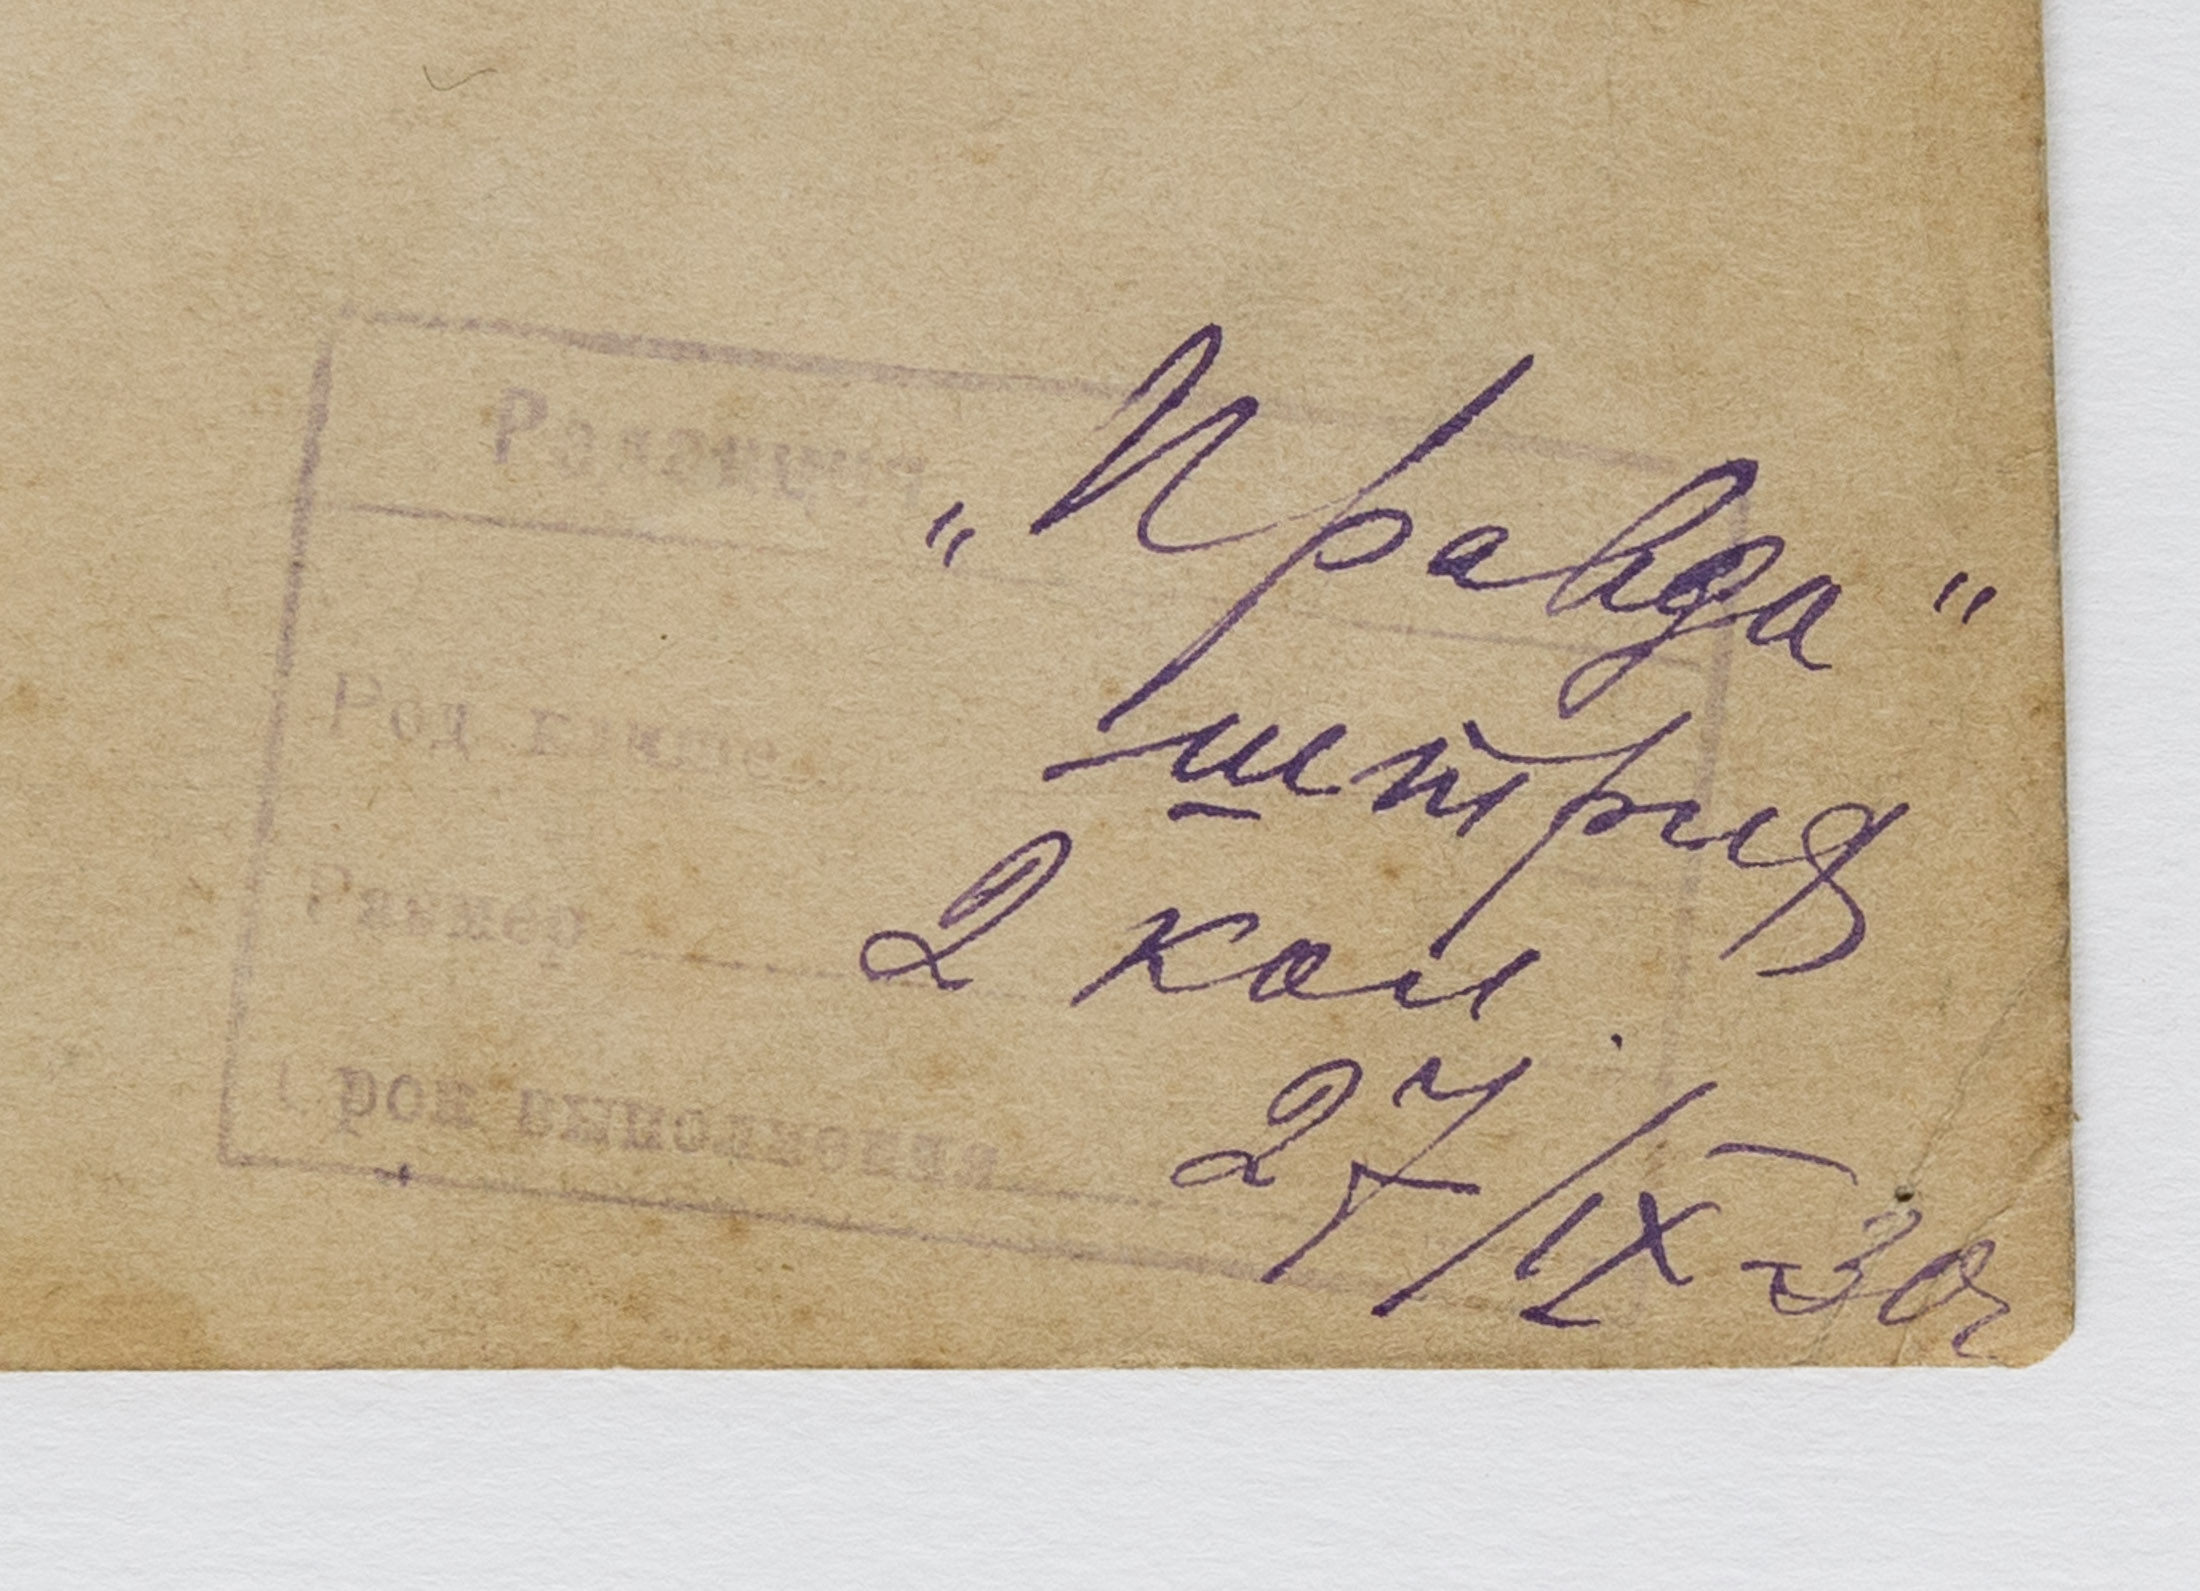 Редакция
"Правда"
Род клише
штрих
Размер
2 кол.
Срок выполнения
27/IX-30г